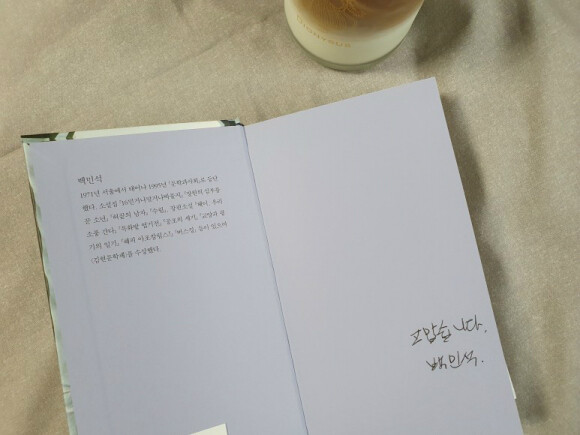 백민석
1971년 서울에서 태어나 1995년 『문학과사회』로 등단
했다. 소설집 『16믿거나말거나박물지』, 『장원의 심부름
꾼 소년』, 『혀끝의 남자』, 『수림』, 장편소설 『헤이, 우리
소풍 간다』, 『목화밭 엽기전』, 『공포의 세기』, 『교양과 광
기의 일기』, 『해피 아포칼립스!』, 『버스킹!』 등이 있으며
〈김현문학패〉를 수상했다.
고맙습니다.
백민석.